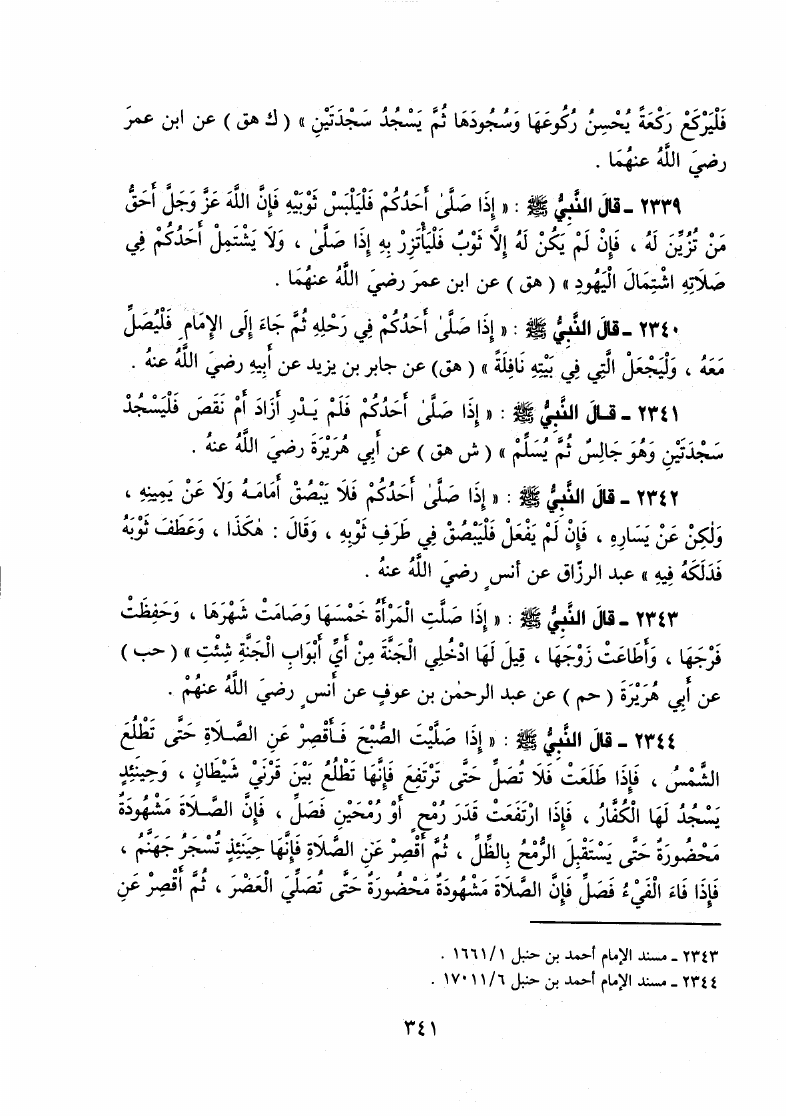 فَلْيَرْكَعْ رَكْعَةً يُحْسِنُ رُكُوعَهَا وَسُجُودَهَا ثُمَّ يَسْجُدُ سَجْدَتَيْنِ » ( ك هق ) عن ابن عمرَ
رضيَ اللَّهُ عنهُما .
٢٣٣٩ - قالَ النَّبيُّ ﷺ : « إِذَا صَلَّىٰ أَحَدُكُمْ فَلْيَلْبَسْ ثَوْبَيْهِ فَإِنَّ اللَّهَ عَزَّ وَجَلَّ أَحَقُّ
مَنْ تُزُيِّنَ لَهُ ، فَإِنْ لَمْ يَكُنْ لَهُ إِلَّا ثَوْبٌ فَلْيَأْتَزِرْ بِهِ إِذَا صَلَّىٰ ، وَلَا يَشْتَمِلْ أَحَدُكُمْ فِي
صَلَاتِهِ اشْتِمَالَ الْيَهُودِ » ( هق ) عن ابن عمرَ رضيَ اللَّهُ عنهُمَا .
٢٣٤٠ - قالَ النَّبيُّ ﷺ : « إِذَا صَلَّىٰ أَحَدُكُمْ فِي رَحْلِهِ ثُمَّ جَاءَ إِلَى الإِمَامِ فَلْيُصَلِّ
مَعَهُ ، وَلْيَجْعَلْ الَّتِي فِي بَيْتِهِ نَافِلَةً » ( هق) عن جابر بن يزيد عن أَبيهِ رضيَ اللَّهُ عنهُ .
٢٣٤١ - قـالَ النَّبيُّ ﷺ : « إِذَا صَلَّى أَحَدُكُمْ فَلَمْ يَـدْرِ أَزَادَ أَمْ نَقَصَ فَلْيَسْجُدْ
سَجْدَتَيْنِ وَهُوَ جَالِسٌ ثُمَّ يُسَلِّمْ » ( ش هق ) عن أَبي هُرَيْرَةَ رضيَ اللَّهُ عنهُ .
٢٣٤٢ - قالَ النَّبيُّ ﷺ : « إِذَا صَلَّىٰ أَحَدُكُمْ فَلَا يَبْصُقْ أَمَامَـهُ وَلَا عَنْ يَمِينِهِ ،
وَلٰكِنْ عَنْ يَسَارِهِ ، فَإِنْ لَمْ يَفْعَلْ فَلْيَبْصُقْ فِي طَرَفِ ثَوْبِهِ ، وَقَالَ : هٰكَذَا ، وَعَطَفَ ثَوْبَهُ
فَدَلَكَهُ فِيهِ » عبد الرزَّاق عن أنسٍ رضيَ اللَّهُ عنهُ .
٢٣٤٣ - قالَ النَّبيُّ ﷺ : « إِذَا صَلَّتِ المَرْأَةُ خَمْسَهَا وَصَامَتْ شَهْرَهَا ، وَحَفِظَتْ
فَرْجَهَا ، وَأَطَاعَتْ زَوْجَهَا ، قِيلَ لَهَا ادْخُلِي الْجَنَّةَ مِنْ أَيِّ أَبْوَابِ الْجَنَّةِ شِئْتِ » ( حب )
عن أَبي هُرَيْرَةَ ( حم ) عن عبد الرحمٰن بن عوفٍ عن أَنسٍ رضيَ اللَّهُ عنهُمْ .
٢٣٤٤ - قالَ النَّبيُّ ﷺ : « إِذَا صَلَّيْتَ الصُّبْحَ فَـأَقْصِرْ عَنِ الصَّـلَاةِ حَتَّى تَطْلُعَ
الشَّمْسُ ، فَإِذَا طَلَعَتْ فَلَا تُصَلِّ حَتَّى تَرْتَفِعَ فَإِنَّهَا تَطْلُعُ بَيْنَ قَرْنَيْ شَيْطَانٍ ، وَحِينَئِذٍ
يَسْجُدُ لَهَا الْكُفَّارُ ، فَإِذَا ارْتَفَعَتْ قَدَرَ رُمْحٍ أَوْ رُمْحَيْنِ فَصَلِّ ، فَإِنَّ الصَّـلَاةَ مَشْهُودَةٌ
مَحْضُورَةٌ حَتَّى يَسْتَقْبِلَ الرُّمْحُ بِالظِّلِّ ، ثُمَّ أَقْصِرْ عَنِ الصَّلَاةِ فَإِنَّهَا حِينَئِذٍ تُسْجَرُ جَهَنَّمُ ،
فَإِذَا فَاءَ الْفَيْءُ فَصَلِّ فَإِنَّ الصَّلَاةَ مَشْهُودَةٌ مَحْضُورَةٌ حَتَّى تُصَلِّيَ الْعَصْرَ ، ثُمَّ أَقْصِرْ عَنِ
٢٣٤٣ - مسند الإمام أحمد بن حنبل ١٦٦١/١ .
٢٣٤٤ - مسند الإمام أحمد بن حنبل ١٧٠١١/٦ .
٣٤١